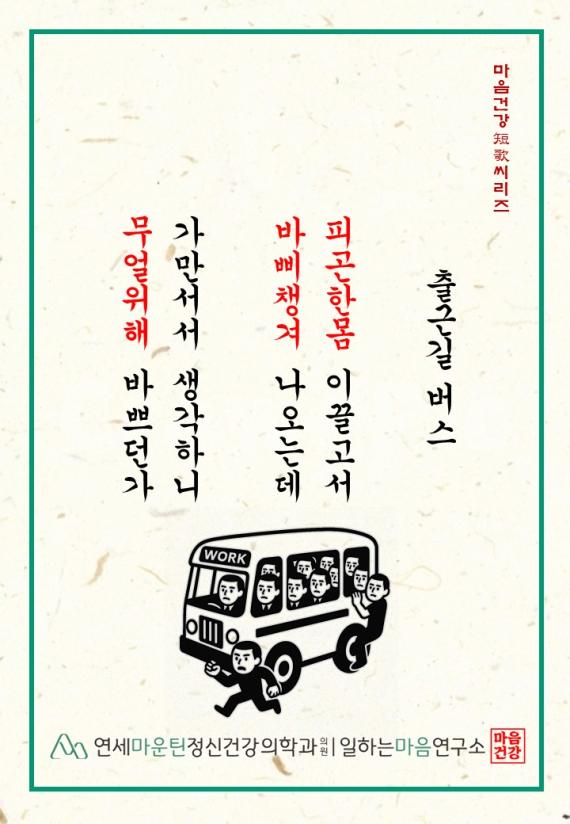 마음건강 短歌 씨리즈
출근길 버스
피곤한몸 이끌고서
바삐챙겨 나오는데
가만서서 생각하니
무얼위해 바쁘던가
WORK
연세마운틴정신건강의학과의원 | 일하는마음연구소
마음
건강